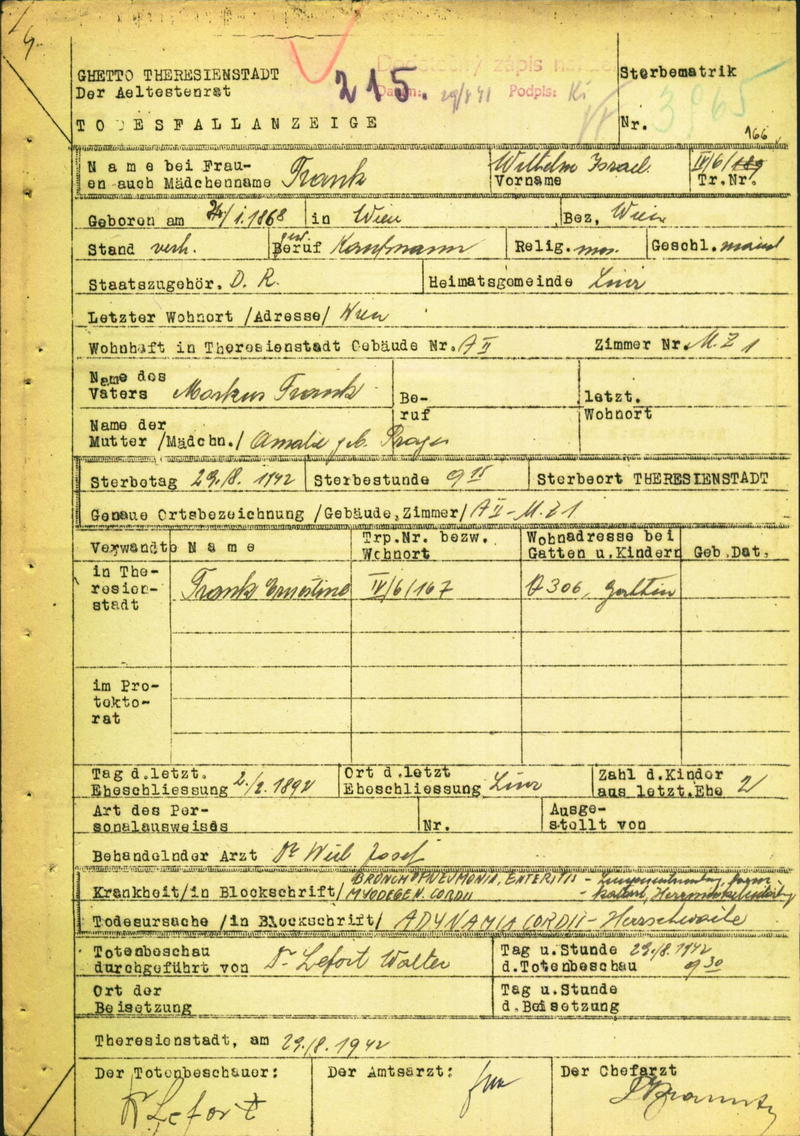 GHETTO THERESIENSTADT
Der Aeltestenrat
215.
Podpis:
Sterbematrik
TODESFALLANZEIGE
Nr.
166
Name bei Frau-
en auch Mädchenname Frank
Wilhelm Israel
Vorname
IV/6/189
Tr.Nr.
Geboren am /I.1868 in Wien Bez, Wien
Stand verh. gew. Beruf Kaufmann Relig. mos. Geschl.
Staatszugehör. D. R. Heimatsgemeinde
Letzter Wohnort /Adresse/ Wien
Wohnhaft in Theresienstadt Gebäude Nr. A II Zimmer Nr. M.Z 1
Name des
Vaters Markus Frank
Be-
ruf
letzt.
Wohnort
Name der
Mutter /Mädchn./ Amalie geb.
Sterbetag 29./8. 1942 Sterbestunde 9 15 Sterbeort THERESIENSTADT
Genaue Ortsbezeichnung /Gebäude, Zimmer/ A II - M.Z 1
Verwandte Name
Trp.Nr. bezw.
Wohnort
Wohnadresse bei
Gatten u.Kindern
Geb.Dat.
in The-
resien-
stadt
Frank Ernestine IV/6/167 Q 306, Gattin
im Pro-
tekto-
rat
Tag d.letzt.
Eheschliessung 2./2. 1892
Ort d.letzt
Eheschliessung
Zahl d.Kinder
aus letzt.Ehe 2
Art des Per-
sonalausweises
Nr.
Ausge-
stellt von
Behandelnder Arzt Dr Weil Josef
Krankheit/in Blockschrift/ BRONCHOPNEUMONIA, ENTERITIS -
MYODEGEN. CORDIS
Todesursache /in Blockschrift/ ADYNAMIA CORDIS - Herzschwäche
Totenbeschau
durchgeführt von Dr Lefort Walter
Tag u.Stunde
d.Totenbeschau 29./8. 1942
9 30
Ort der
Beisetzung
Tag u.Stunde
d.Beisetzung
Theresienstadt, am 29./8. 1942
Der Totenbeschauer: Der Amtsarzt: Der Chefarzt
Lefort